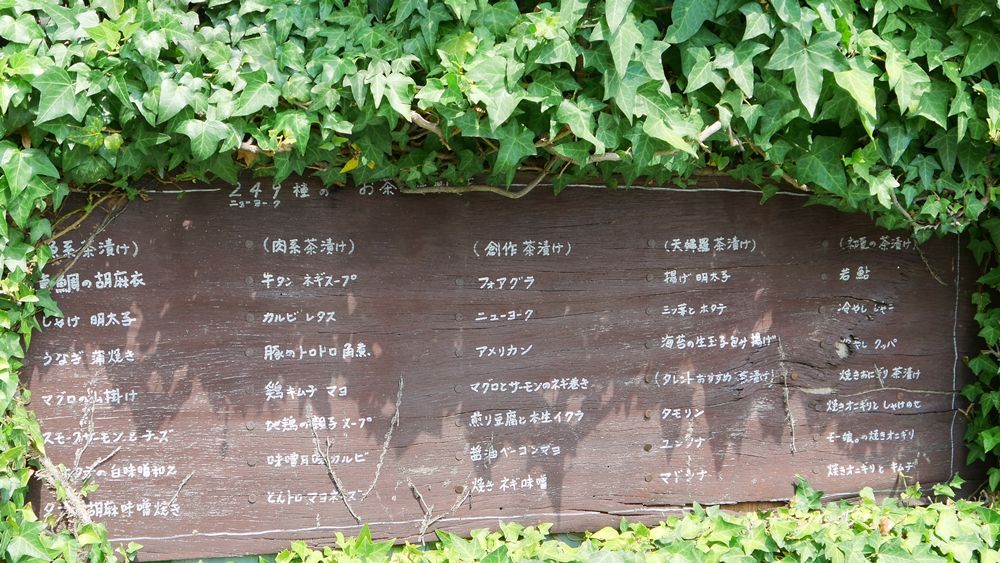 249種の お茶
ニューヨーク
魚系茶漬け)
鯛の胡麻衣
しゃけ 明太子
うなぎ 蒲焼き
マグロの山掛け
スモークサーモンとチーズ
の白味噌和え
胡麻味噌焼き
(肉系茶漬け)
牛タン ネギスープ
カルビ レタス
豚のトロトロ角煮
鶏キムチ マヨ
地鶏の親子スープ
味噌 カルビ
とんトロ マヨネーズ
(創作茶漬け)
フォアグラ
ニューヨーク
アメリカン
マグロとサーモンのネギ巻き
煎り豆腐と本生イクラ
醤油ベーコンマヨ
焼き ネギ味噌
(天婦羅茶漬け)
揚げ 明太子
三ツ葉と ホタテ
海苔の生玉子包み揚げ
(タレントおすすめ 茶漬け)
タモリン
ユンソナ
マドンナ
の茶漬け)
若鮎
冷やし しゃこ
冷やし クッパ
焼きおにぎり茶漬け
焼きオニギリとしゃけのせ
モー娘。の焼きオニギリ
焼きオニギリと キムチ